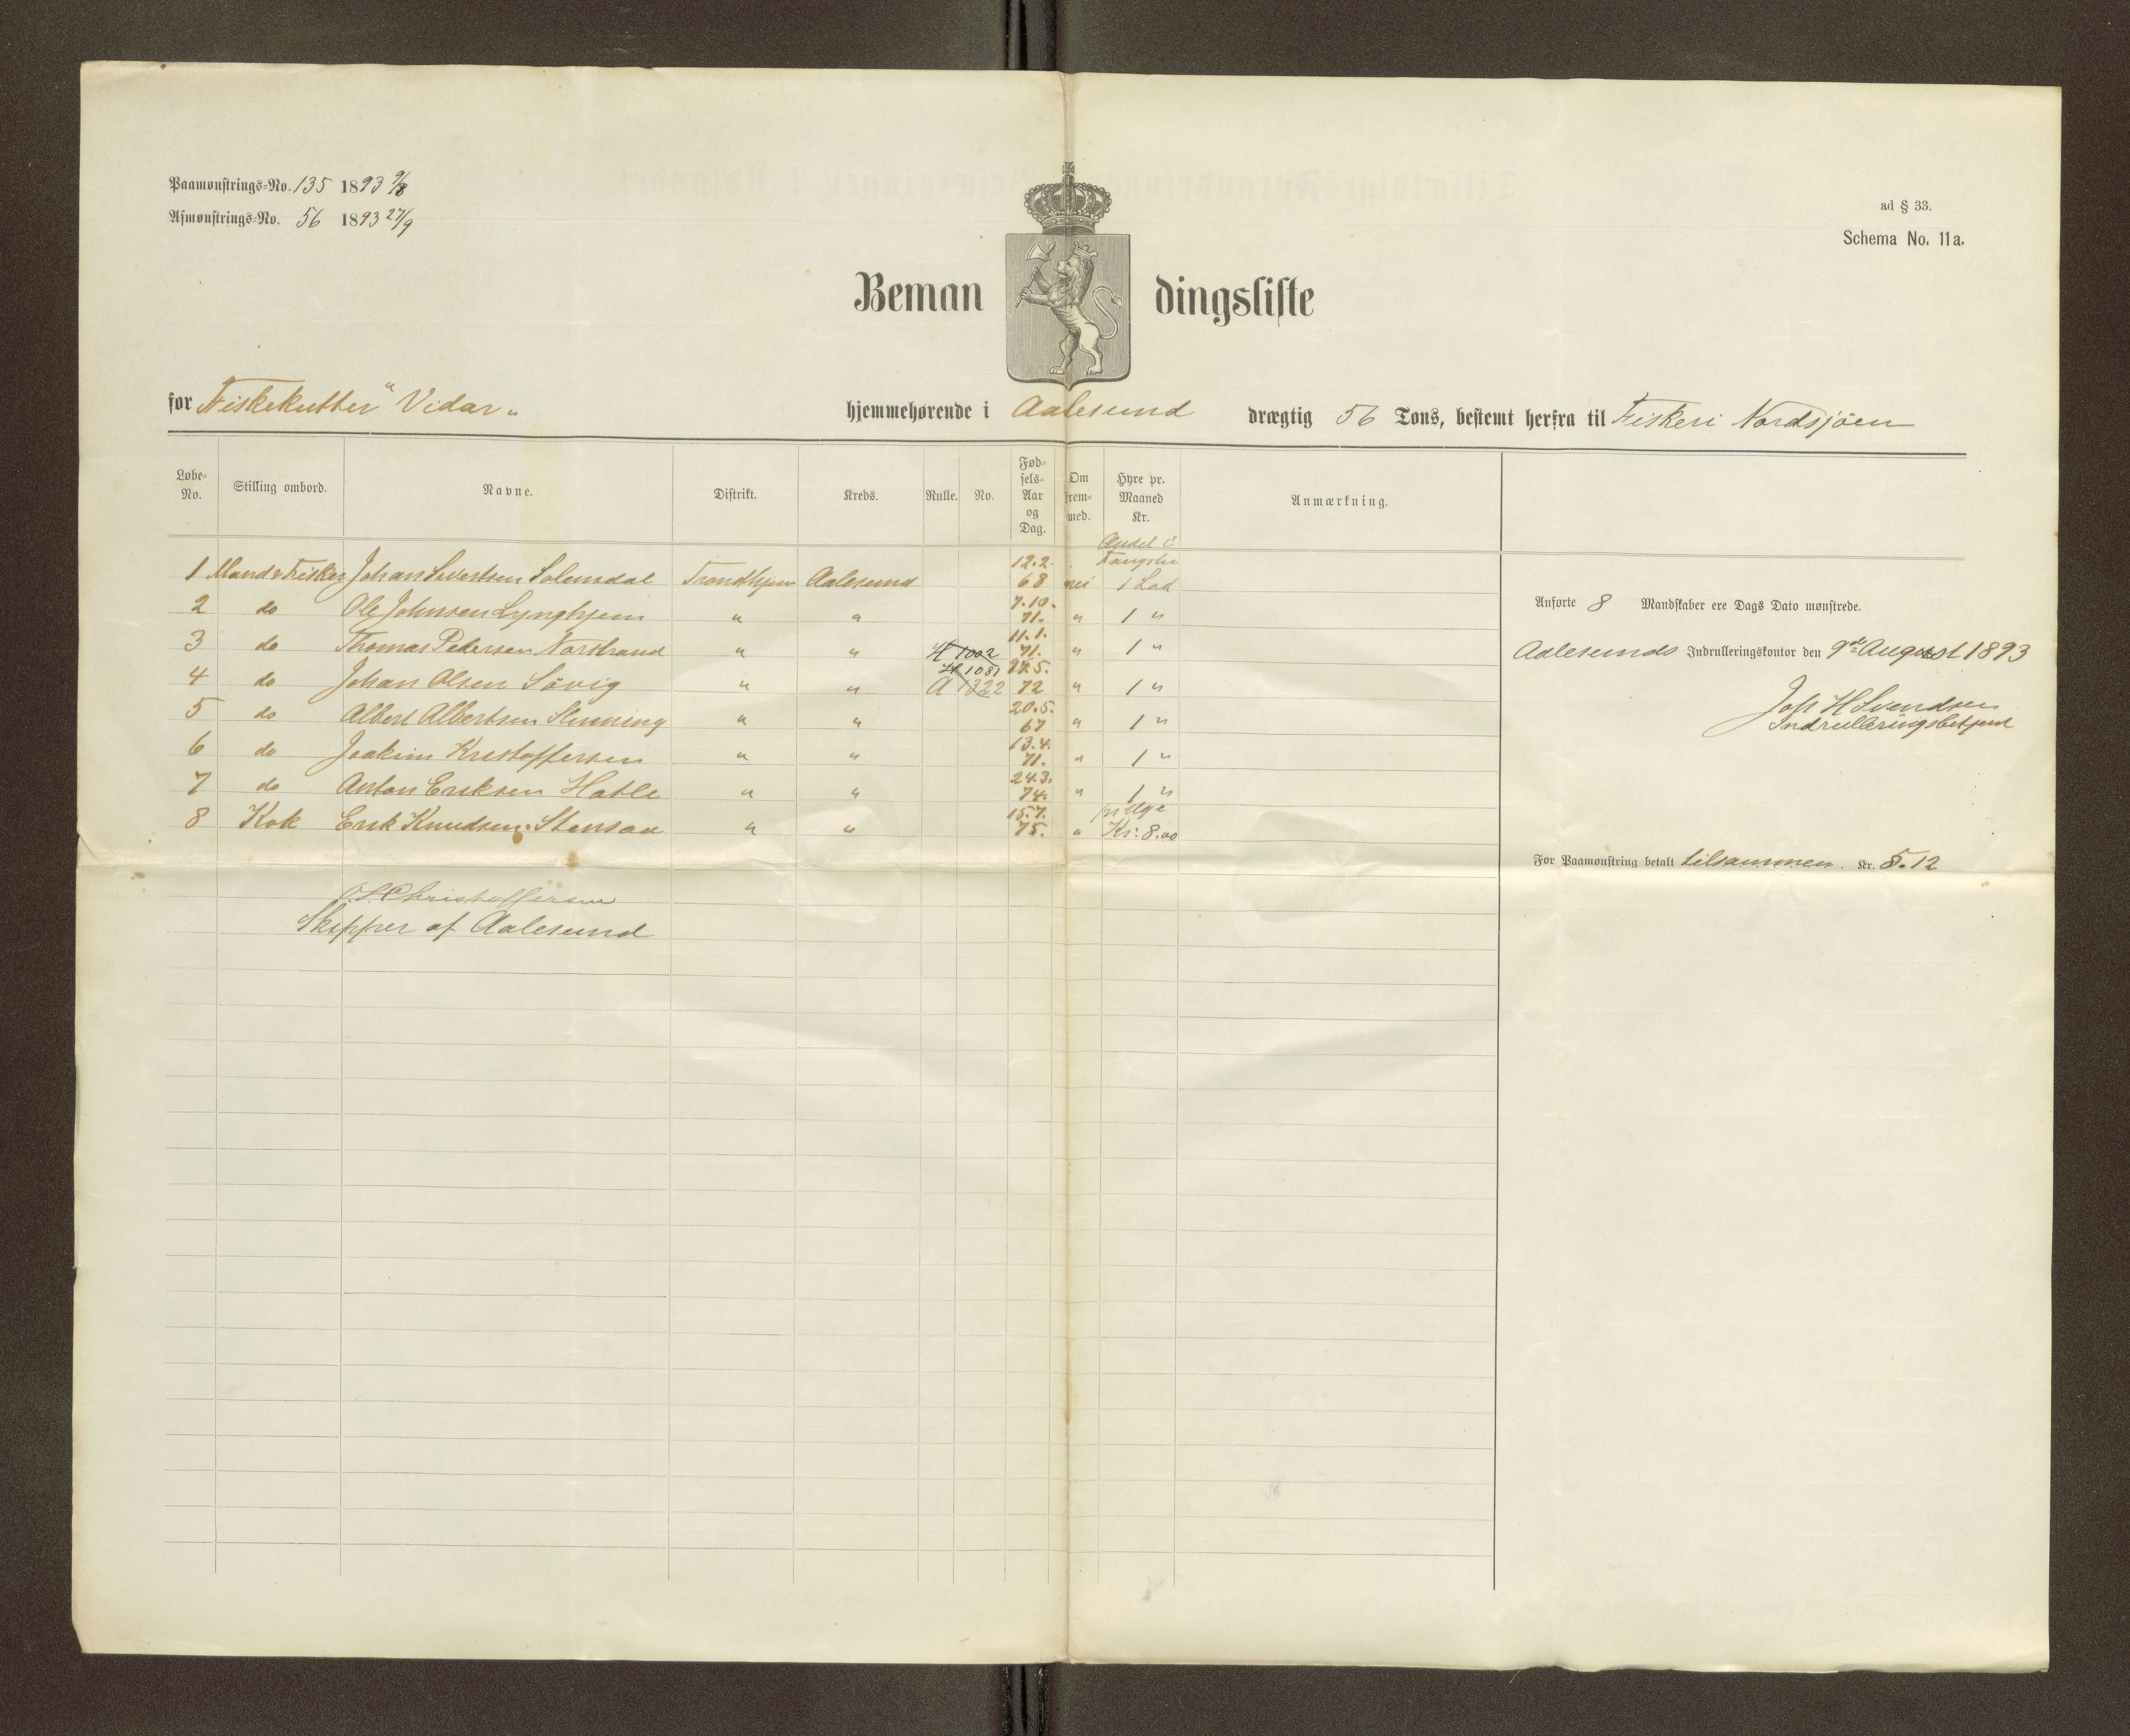 Paamønstrings-No. 135 1893 9/8
Afmønstrings-No. 56 1893 27/9
ad § 33.
Schema No. 11a.
Bemandingsliste
for Fiskekutter "Vidar" hjemmehørende i Aalesund drægtig 56 Tons, bestemt herfra til Fiskeri Nordsjöen
Løbe-No. Stilling ombord. Navne. Distrikt. Kreds. Rulle. No. Fødsels-Aar og Dag. Om frem-med. Hyre pr. Maaned Kr. Anmærkning.
Andel i Fangsten
1 Mand & Fisker Johan Sivertsen Solemdal Trondhjem Aalesund 12.2. 68 nei 1 Lod
2 do Ole Johnsen Lynghjem " " 7.10. 71. " 1 "
3 do Thomas Pedersen Norstrand " " H 1002 11.1. 71. " 1 "
4 do Johan Olsen Sövig " " H 1081 A 1322 27.5. 72 " 1 "
5 do Albert Albertsen Slinning " " 20.5. 67 " 1 "
6 do Joakim Kristoffersen " " 13.4. 71. " 1 "
7 do Anton Eriksen Hatle " " 24.3. 74. " 1 "
8 Kok Erik Knudsen Stensaa " " 15.7. 75. " pr Uge Kr: 8.00
Christoffersen
Skipper af Aalesund
Anførte 8 Mandskaber ere Dags Dato mønstrede.
Aalesunds Indrulleringskontor den 9de August 1893
Joh H Svendsen
Indrulleringsbetjent
For Paamønstring betalt tilsammen. Kr. 5.12